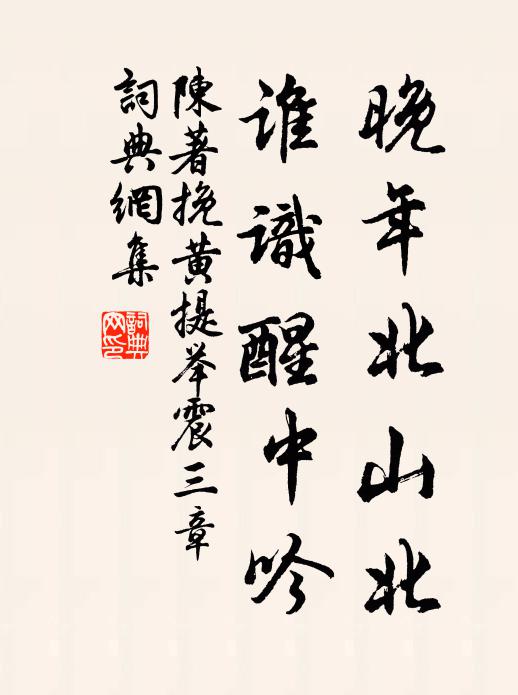 晚年北山北
誰識醒中吟
陳著挽黃提举震三章
詞典網集
詞典网印